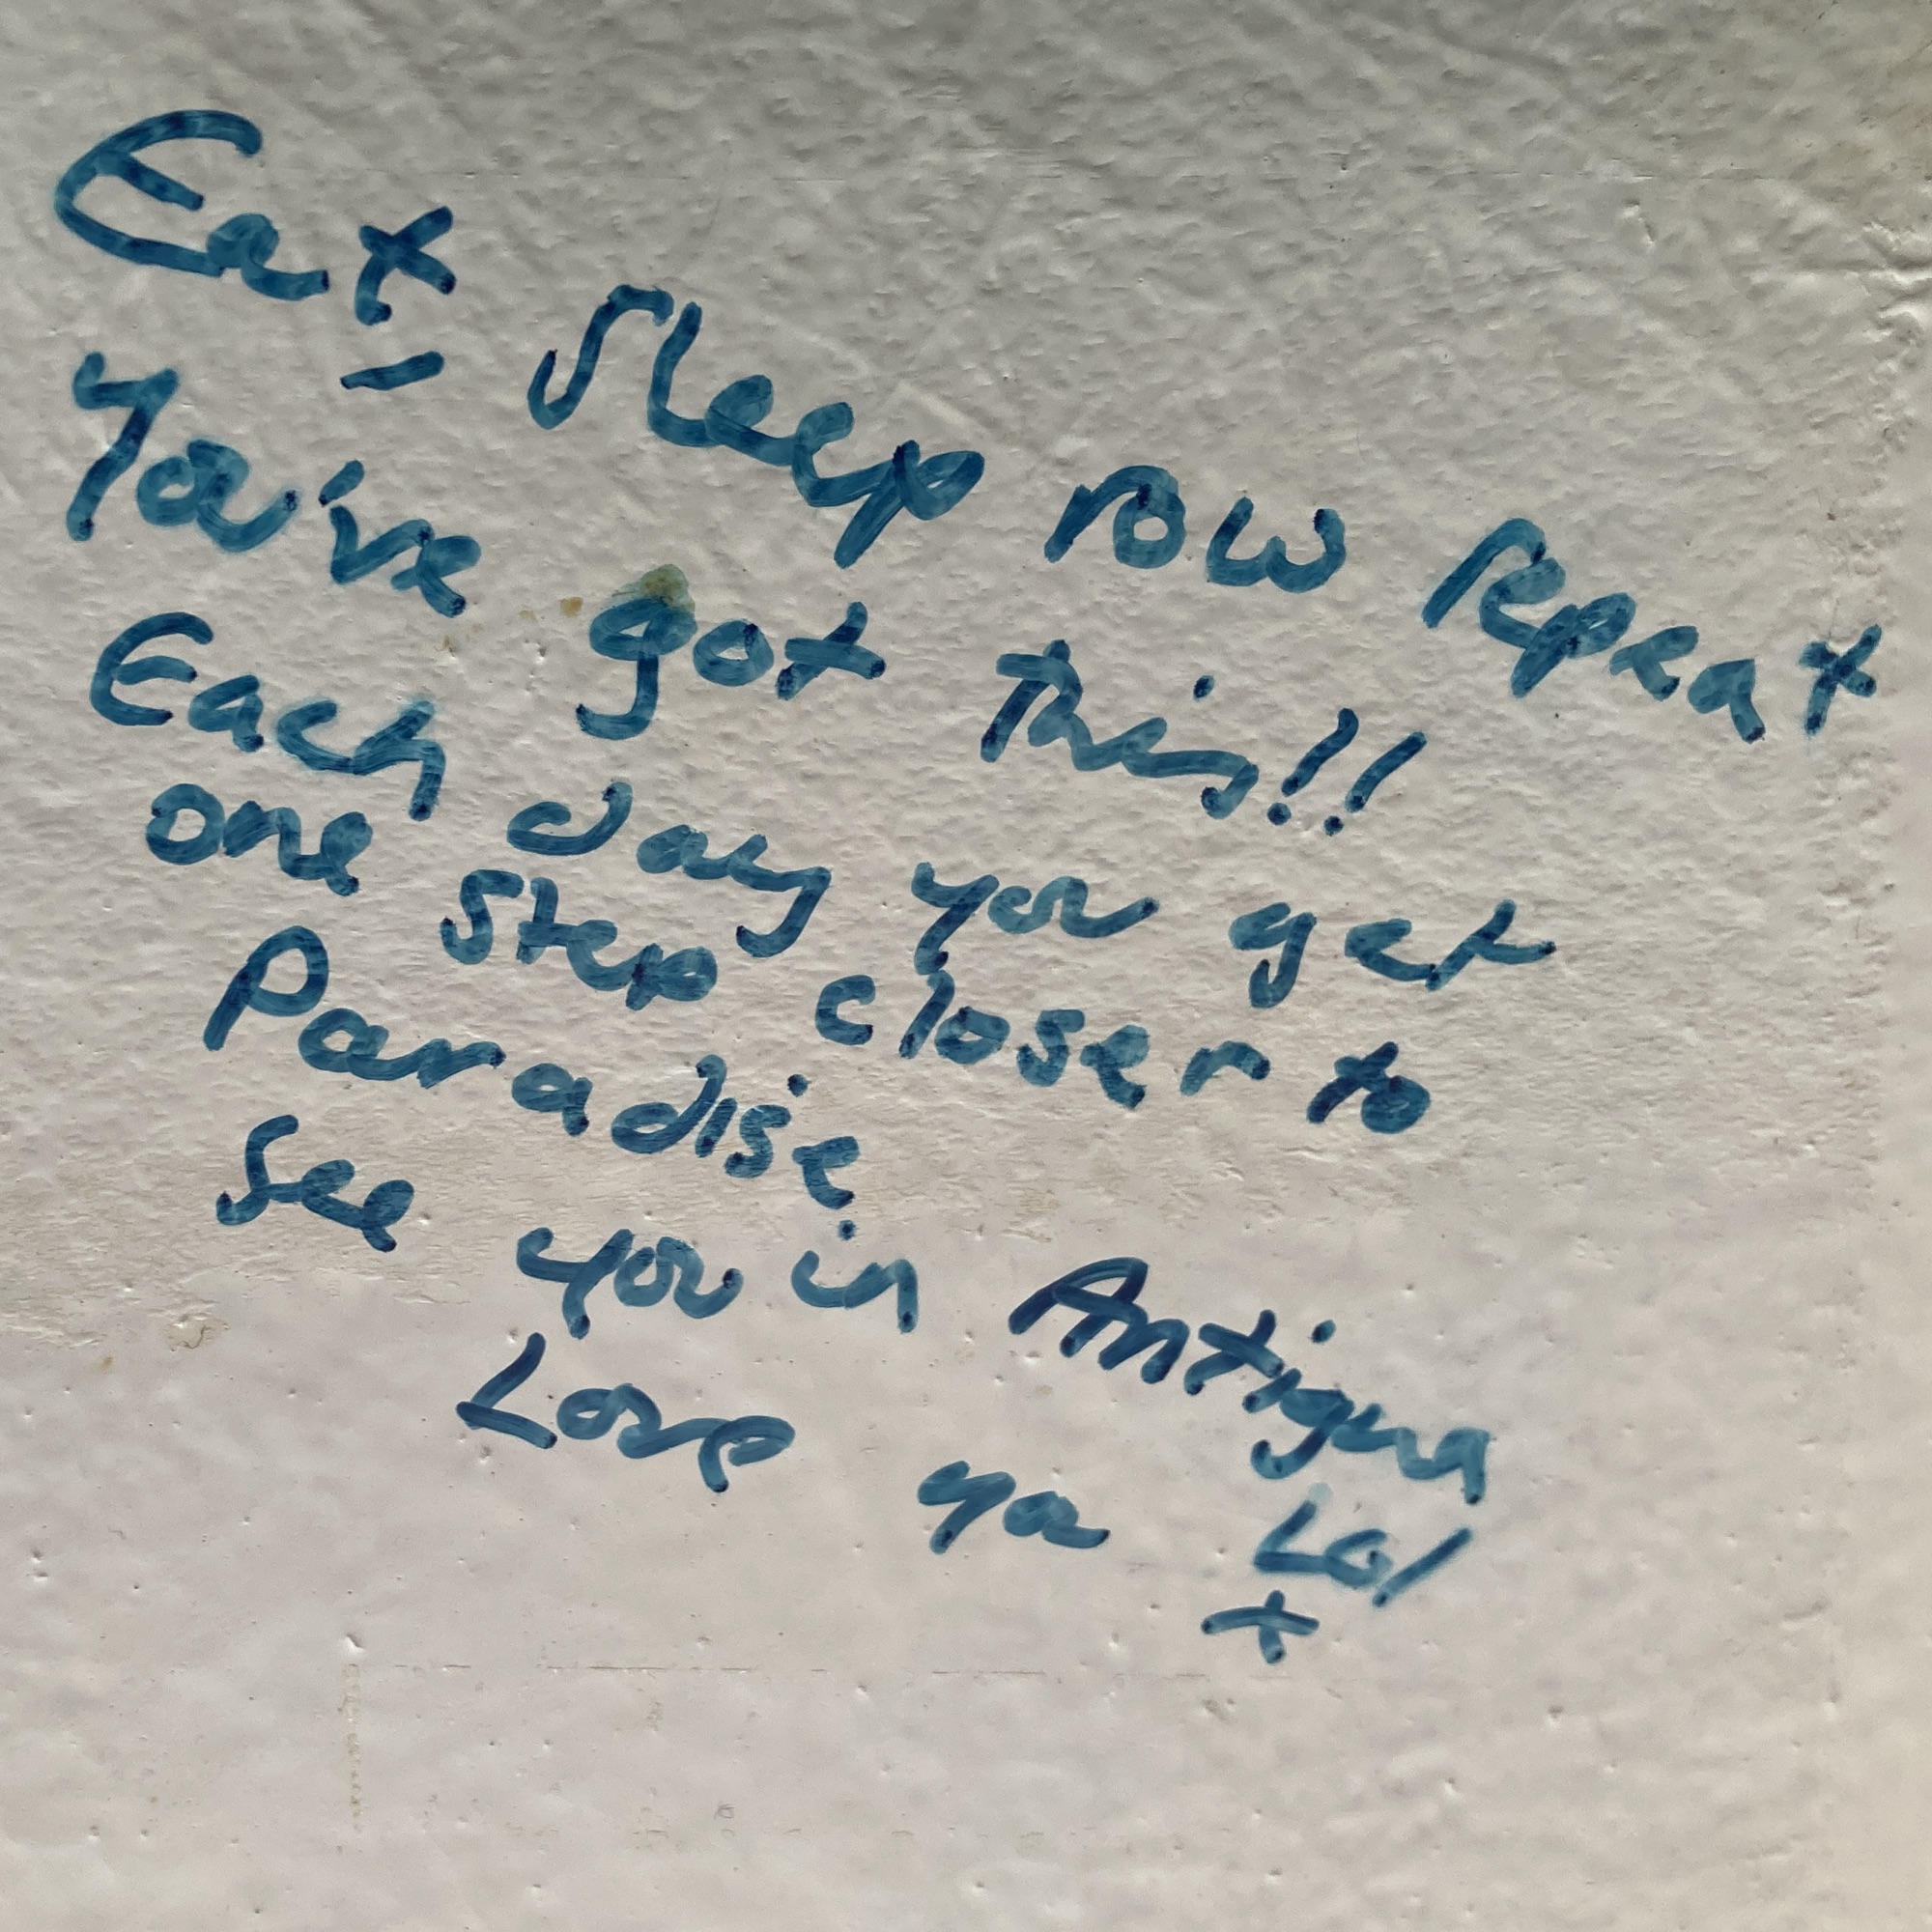 Eat Sleep row Repeat
You've got this!!
Each day you get
one step closer to
Paradise
See you in Antigua
Love ya Lol
x